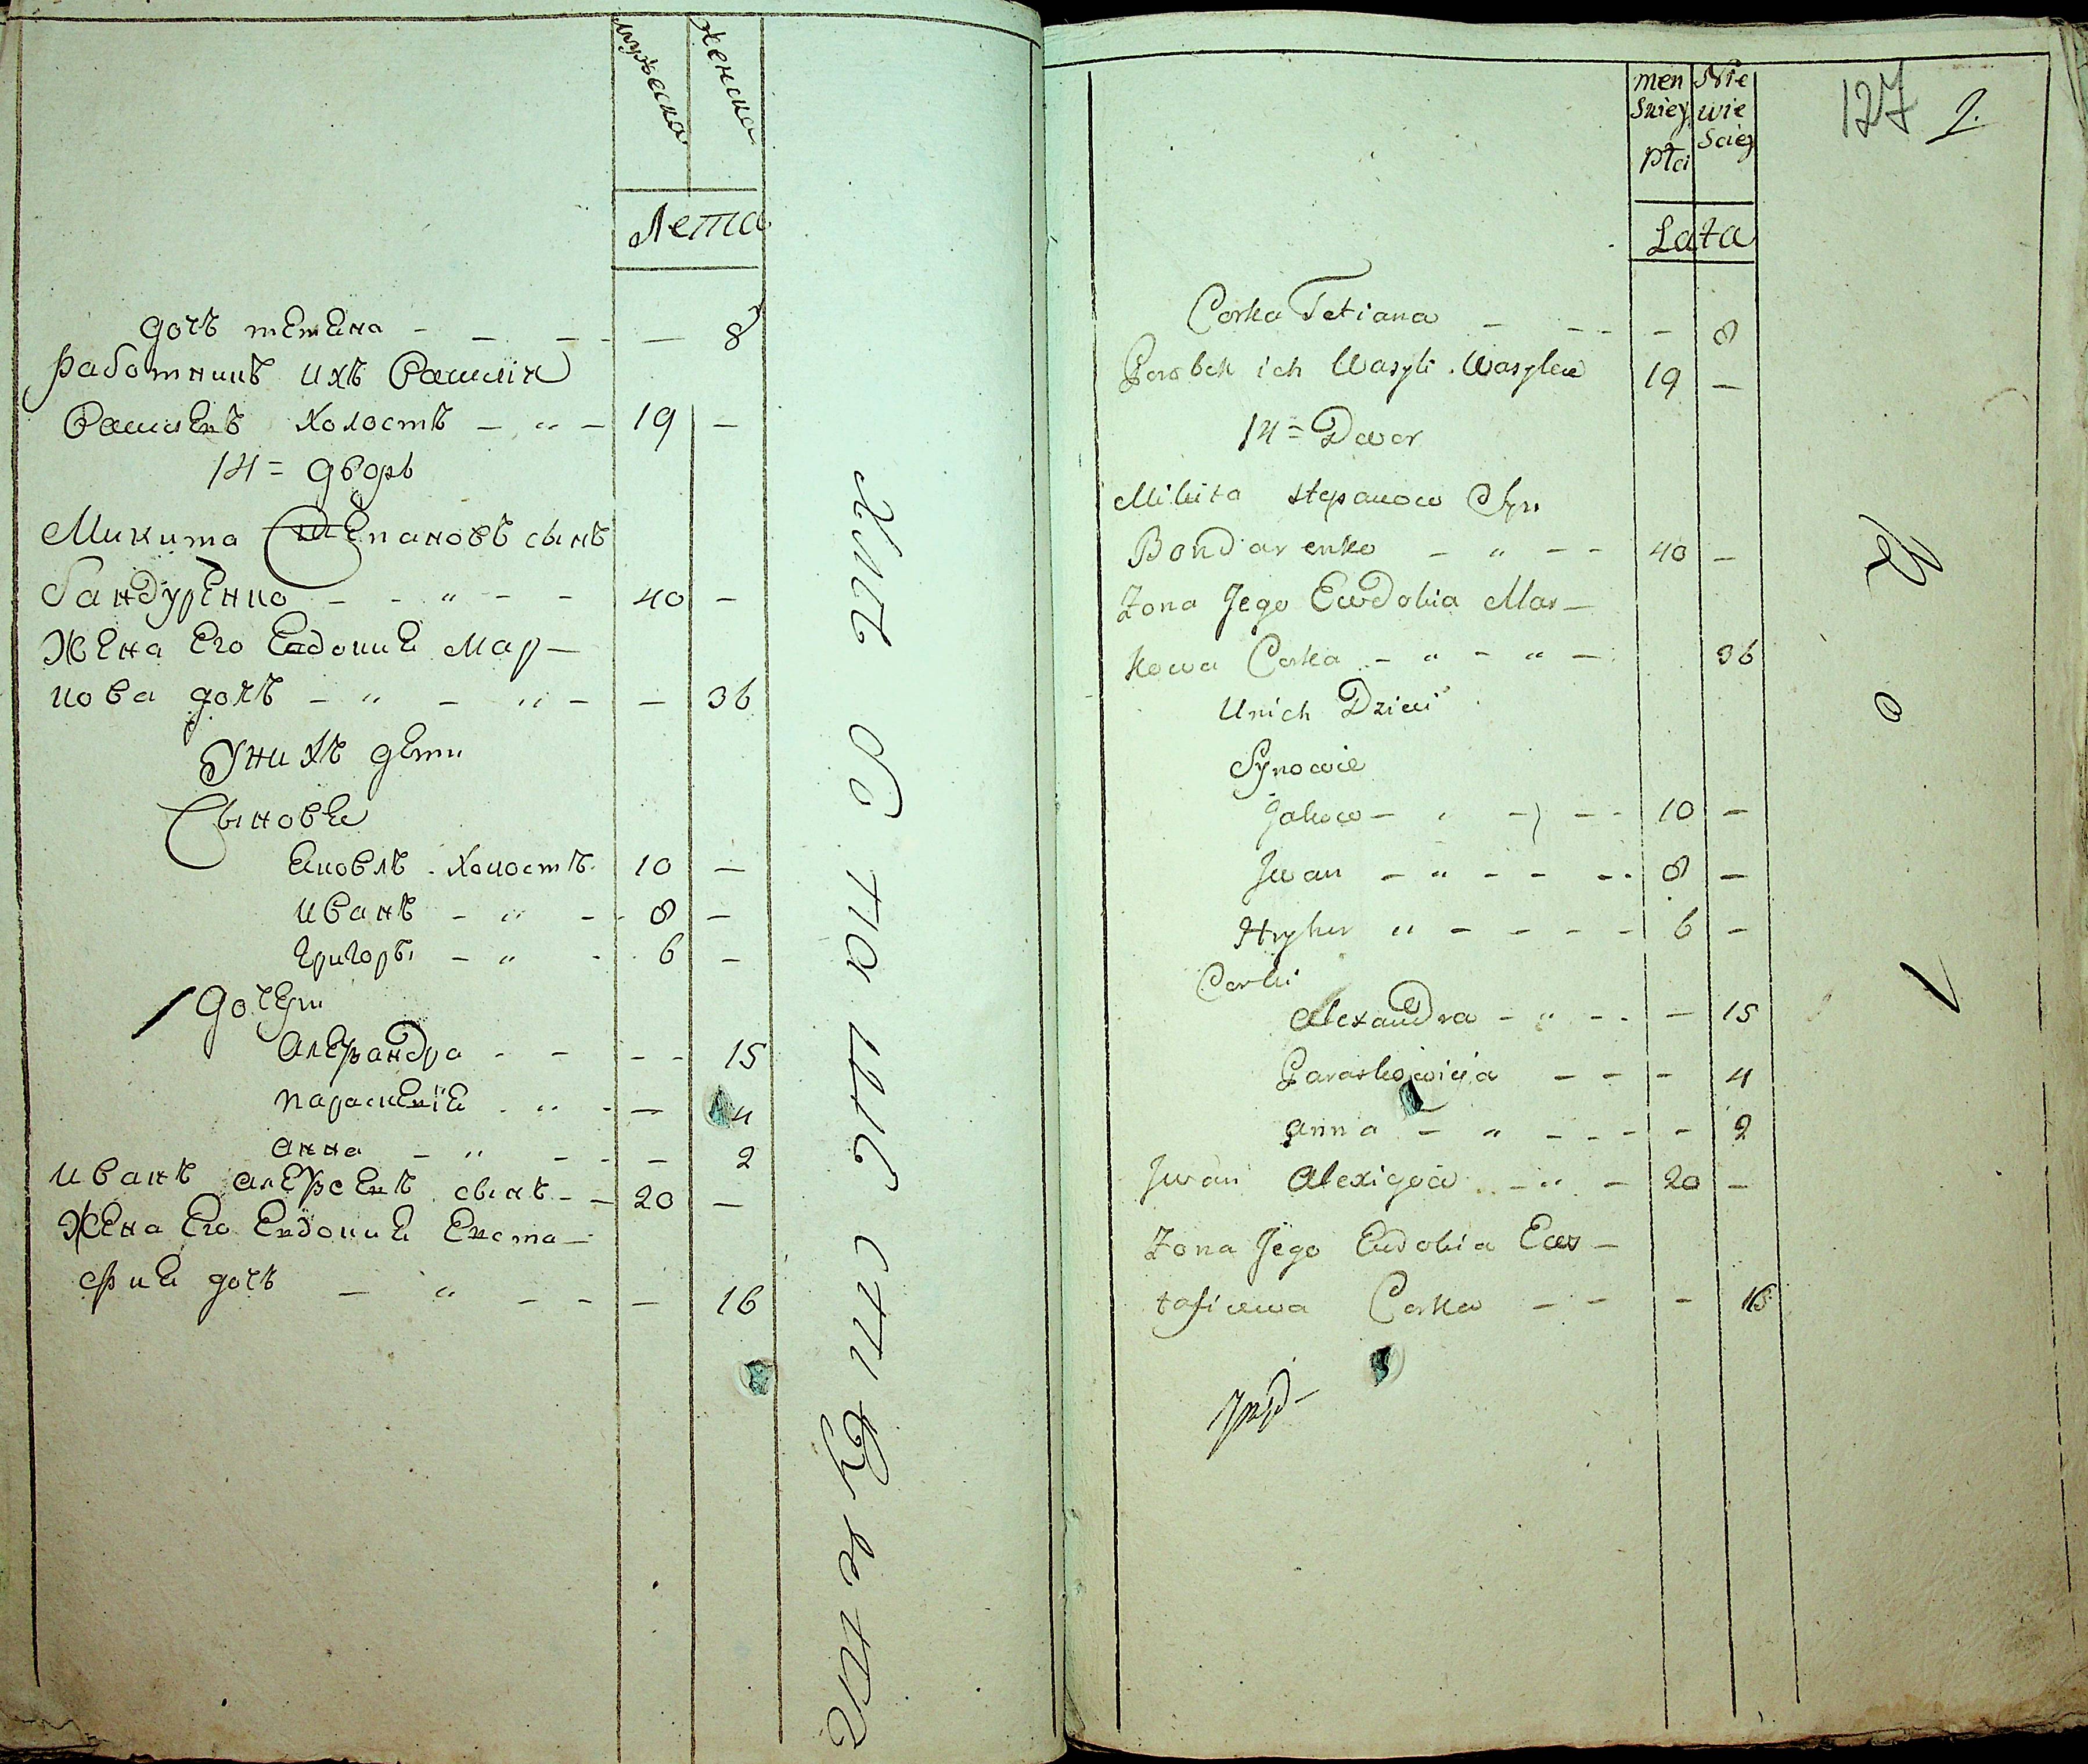 мужеска
женска
Лета
дочь тетѣна - - - - 8
работникъ ихъ Василiй
Василевъ холостъ - " - 19 -
14 = дворъ
Микита Степановъ сынъ
бандуренко - - " - - 40 -
Жена Его Евдокие Мар-
кова дочъ - " - " - - 36
У нихъ дети
Сыновье
Яковлъ - холостъ 10 -
иванъ - " - - 8 -
григоры - " - 6 -
дочери
александра - - - - 15
параскевiе - " - - 4
анна - " - - - 2
иванъ алексеевъ сынъ - - 20 -
Жена Его Евдокие Евста-
фие дочъ - " - - - 16
men
skiey
płci
Nie
wie
sciey
127
Lata
Corka Tetiana - - - - 8
Parobek ich Wasyli Wasylew 19 -
14 = Dwor
Mikita stepanow Syn
Bondarenko - " - - 40 -
Zona Jego Ewdokia Mar-
kowa Corka - " - " - 36
Unich Dzieci
Synowie
Jakow - - - - 10 -
Iwan - " - - - 8 -
Hryhor " - - - - 6 -
Corki
Alexandra - " - - - 15
Paraskowija - - - 4
anna - " - - - - 2
Iwan Alexiyow - " - 20 -
Zona Jego Eudokia Ews-
tafiewa Corka - - - 16